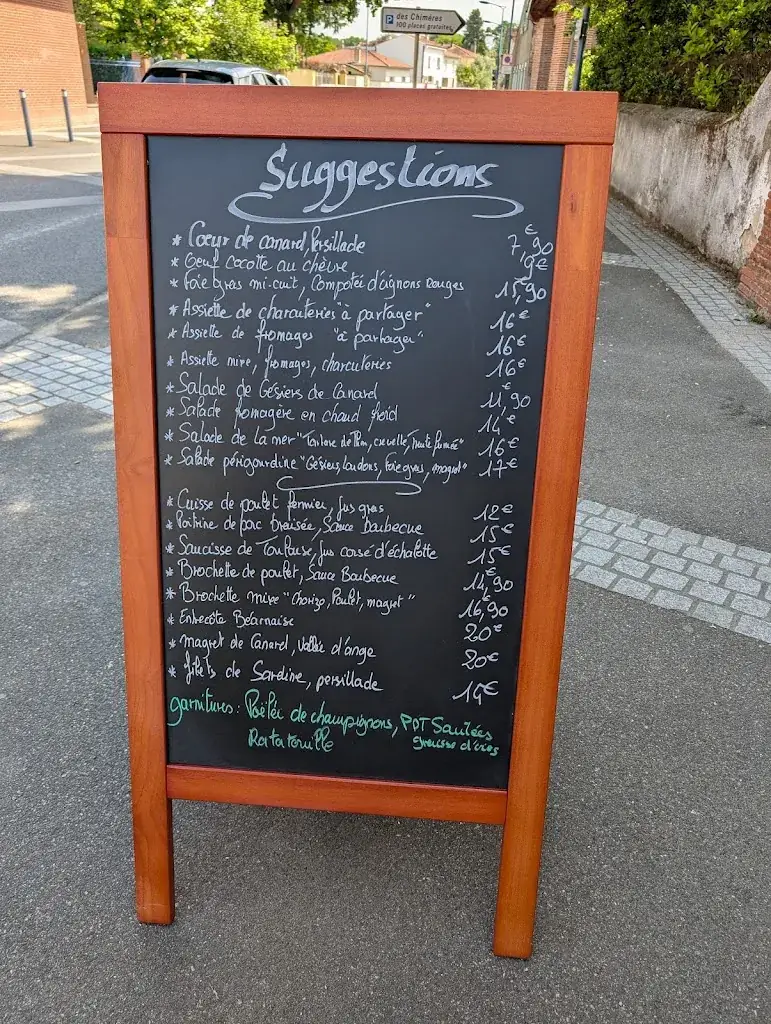 P des Chimères
100 places gratuites
Suggestions
* Coeur de canard, Persillade 7,90€
* Oeuf cocotte au chèvre 9€
* Foie gras mi-cuit, Compotée d'oignons Rouges 15,90
* Assiette de charcuteries "à partager" 16€
* Assiette de fromages "à partager" 16€
* Assiette mixe, fromages, charcuteries 16€
* Salade de Gésiers de Canard 11,90€
* Salade fromagère en chaud froid 14€
* Salade de la mer "Tartare de Thon, crevette, truite fumée" 16€
* Salade périgourdine "Gésiers, lardons, foie gras, magret" 17€
* Cuisse de poulet fermier, jus gras 12€
* Poitrine de porc braisée, Sauce Barbecue 15€
* Saucisse de Toulouse, jus corsé d'échalotte 15€
* Brochette de poulet, Sauce Barbecue 14,90€
* Brochette mixe "Chorizo, Poulet, magret" 16,90€
* Entrecôte Béarnaise 20€
* magret de Canard, Vallée d'auge 20€
* filets de Sardine, persillade 14€
garnitures: Poêlée de champignons, PDT Sautées
Ratatouille graisse d'oies